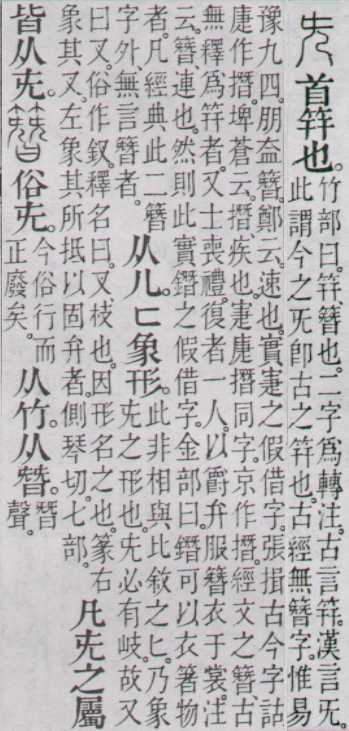 兂 首笄也。竹部曰。笄、簪也。二字爲轉注。古言笄。漢言兂。
此謂今之兂卽古之笄也。古經無簪字。惟易
豫九四。朋盍簪。鄭云。速也。實寁之假借字。張揖古今字詁
疌作撍。埤蒼云。撍、疾也。寁疌撍同字。京作撍。經文之簪、古
無釋爲笄者。又士喪禮。復者一人。以爵弁服簪衣于裳。注
云。簪、連也。然則此實鐕之假借字。金部曰。鐕可以衣箸物
者。凡經典此二簪
字外、無言簪者。
从儿。匸象形。
此非相與比敘之匕。乃象
兂之形也。兂必有岐。故又
曰叉。俗作釵。釋名曰。叉、枝也。因形名之也。篆右
象其叉。左象其所抵以固弁者。側琴切。七部。
凡兂之屬
皆从兂。
簪 俗兂。
今俗行而
正廢矣。
从竹。从朁。
朁
聲。